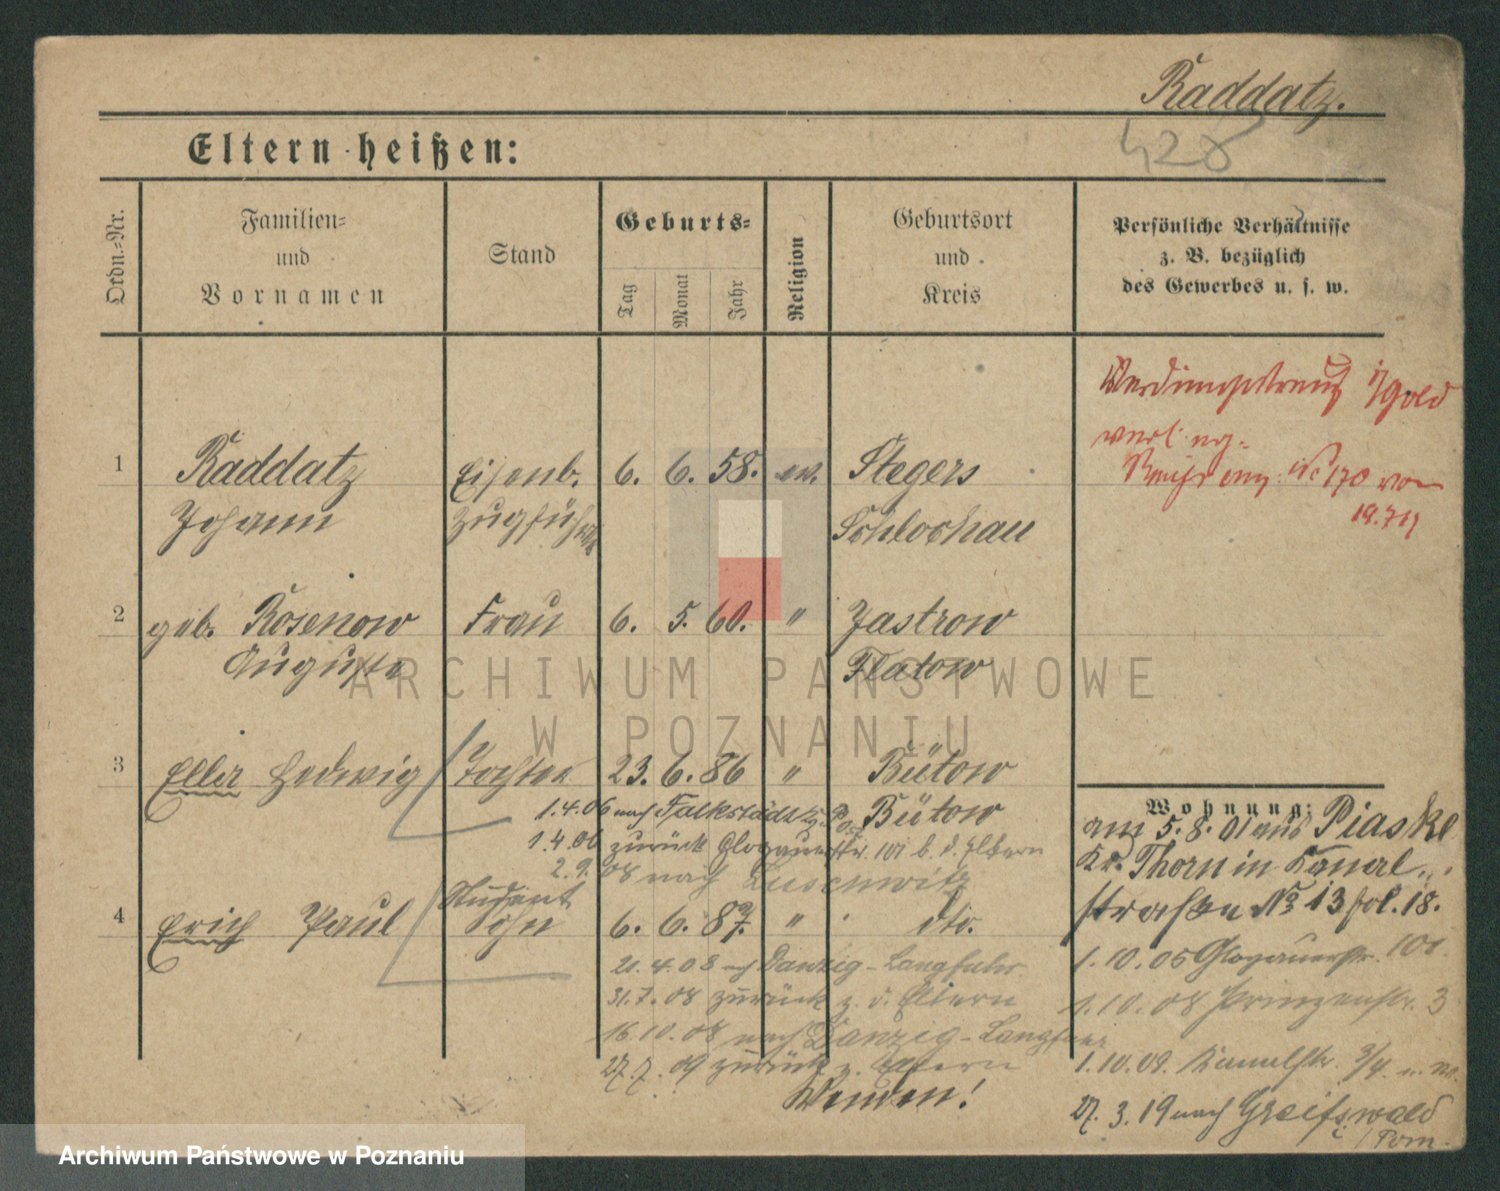 Raddatz.
428
Eltern heißen:
Ordn.=Nr.
Familien=
und
Vornamen
Stand
Geburts=
Tag
Monat
Jahr
Religion
Geburtsort
und
Kreis
Persönliche Verhältnisse
z. B. bezüglich
des Gewerbes u. s. w.
1 Raddatz Eisenb. 6. 6. 58. ev. Stegers
Johann Zugführer Schlochau
2 geb. Rosenow Frau 6. 5. 60. " Jastrow
Auguste Flatow
3 Ella Hedwig Tochter 23. 6. 86 " Bütow
1.4.06 nach Falkstädt Bütow
1.4.06 zurück Glogauerstr. 101 b. d. Eltern
2.9.08 nach Luschwitz
Student
4 Erich Paul Sohn 6. 6. 87. " dto.
21.4.08 nch Danzig-Langfuhr
31.7.08 zurück z. d. Eltern
16.10.08 nach Danzig-Langfuhr
27.7.09 zurück z. Eltern
Wenden!
Verdienstkreuz i/Gold
verl.
No 170 von
Wohnung:
am 5.8.01 aus Piaske
Kr. Thorn in Kanal
straße No 13 fol. 18.
1.10.05 Glogauerstr. 101.
1.10.08 Prinzenstr. 3
1.10.09. Kanalstr. 3/4
27.3.19 nach Greifswald
/Pom.
ARCHIWUM PAŃSTWOWE
W POZNANIU
Archiwum Państwowe w Poznaniu